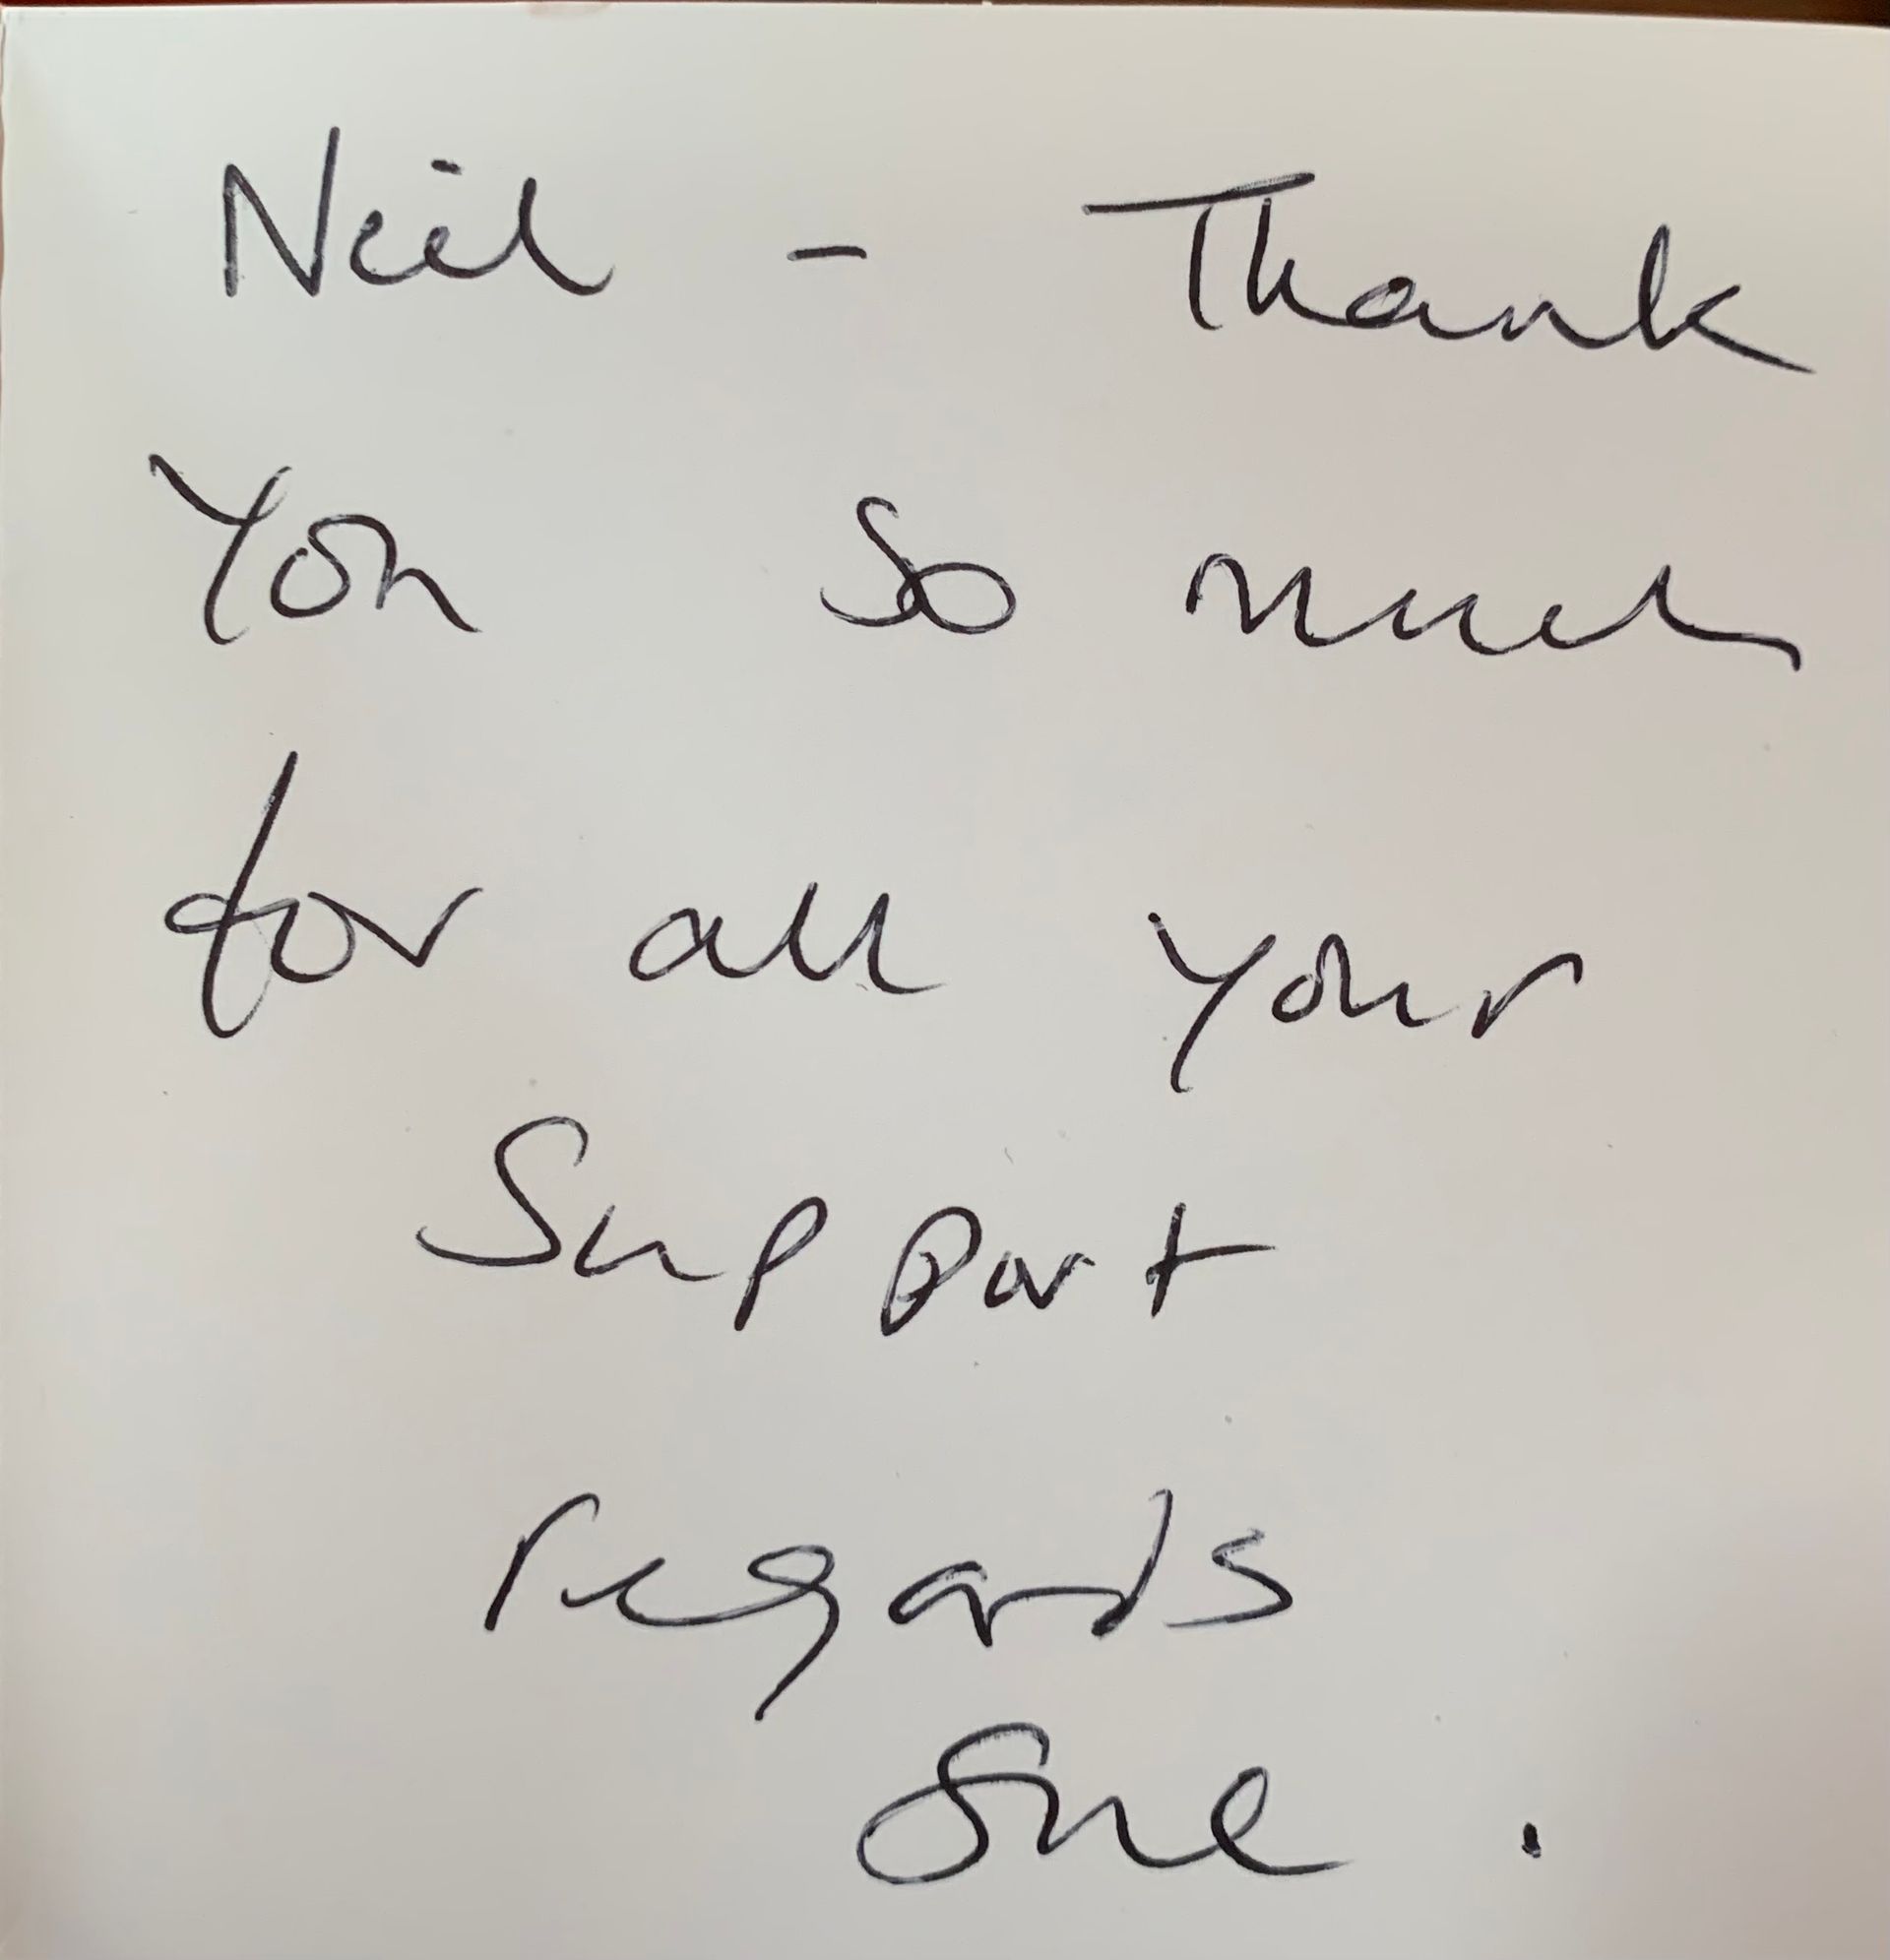 Neil - Thank
You so much
for all your
Support
regards
Sue.